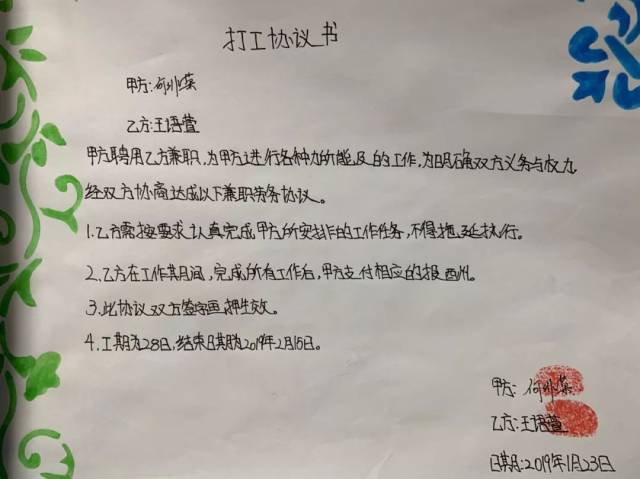 打工协议书
甲方:何小英
乙方:王语萱
甲方聘用乙方兼职,为甲方进行各种力所能及的工作,为明确双方义务与权力
经双方协商达成以下兼职劳务协议。
1.乙方需按要求认真完成甲方所安排的工作任务,不得拖延执行。
2.乙方在工作其间,完成所有工作后,甲方支付相应的报酬。
3.此协议双方签字画押生效。
4.工期为28日,结束日期为2019年2月15日。
甲方:何小英
乙方:王语萱
日期:2019年1月23日